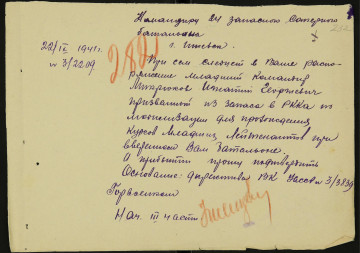 Командиру 24 запасного Саперного
батальона
г. Ижевск
22/IX 1941 г.
N 3/2209
При сем следует в Ваше распо-
ряжение младший командир
Игнатий Георгиевич
призванный из запаса в РККА по
мобилизации для прохождения
курсов Младших Лейтенантов при
вверенном Вам батальоне.
О прибытии прошу подтвердить
Основание: директива РВК N 3/3839
Горвоенком
Нач. III части